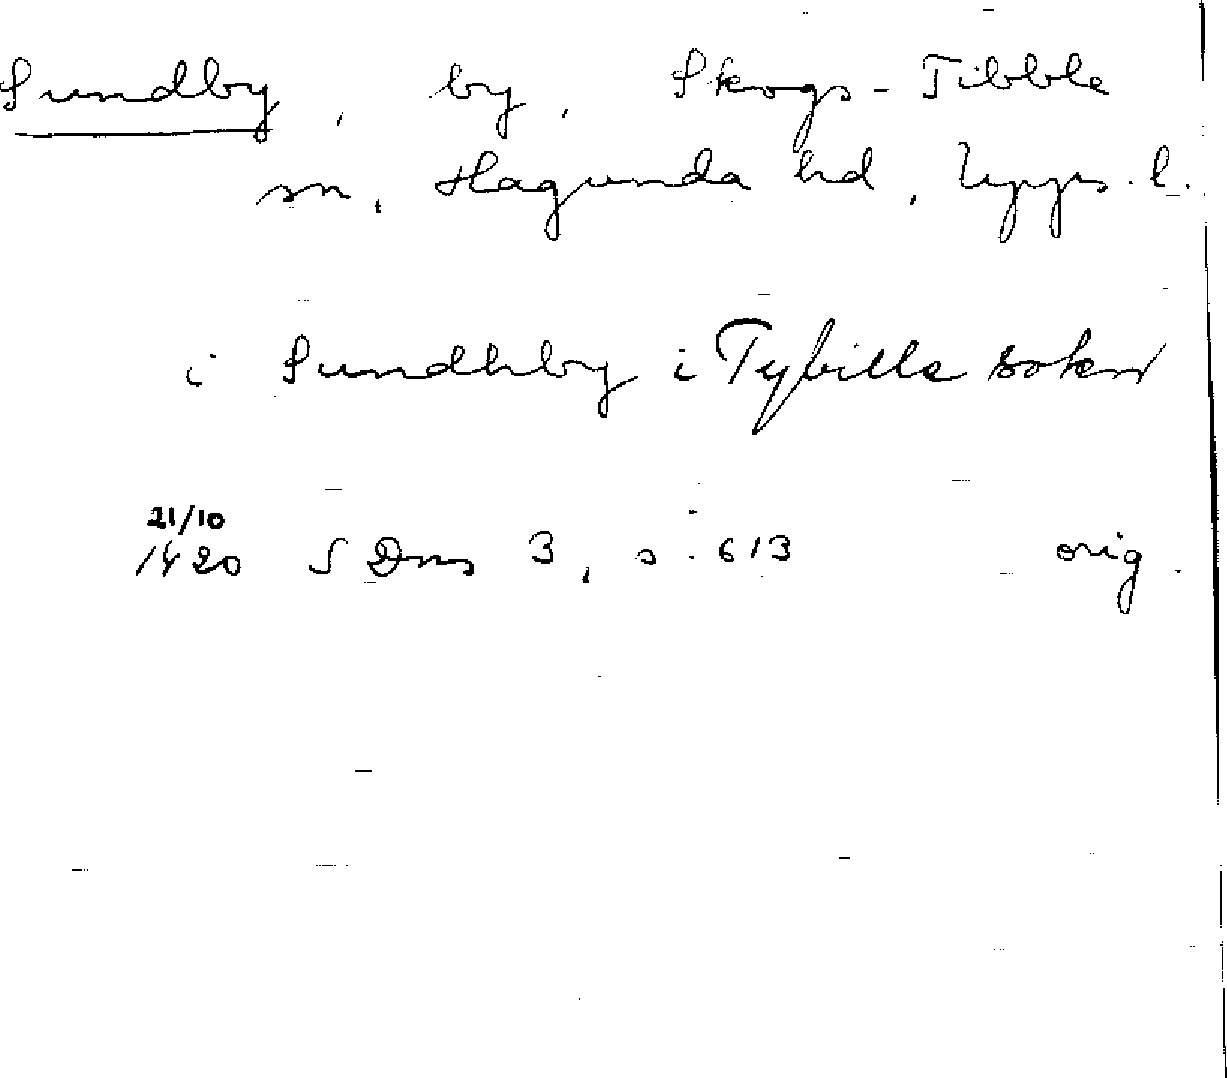 Sundby, by, Skogs-Tibble
sn, Hagunda hd, Upps. l.
i Sundhby i Tybille sokn
21/10
1420 SDns 3, s. 613 orig.